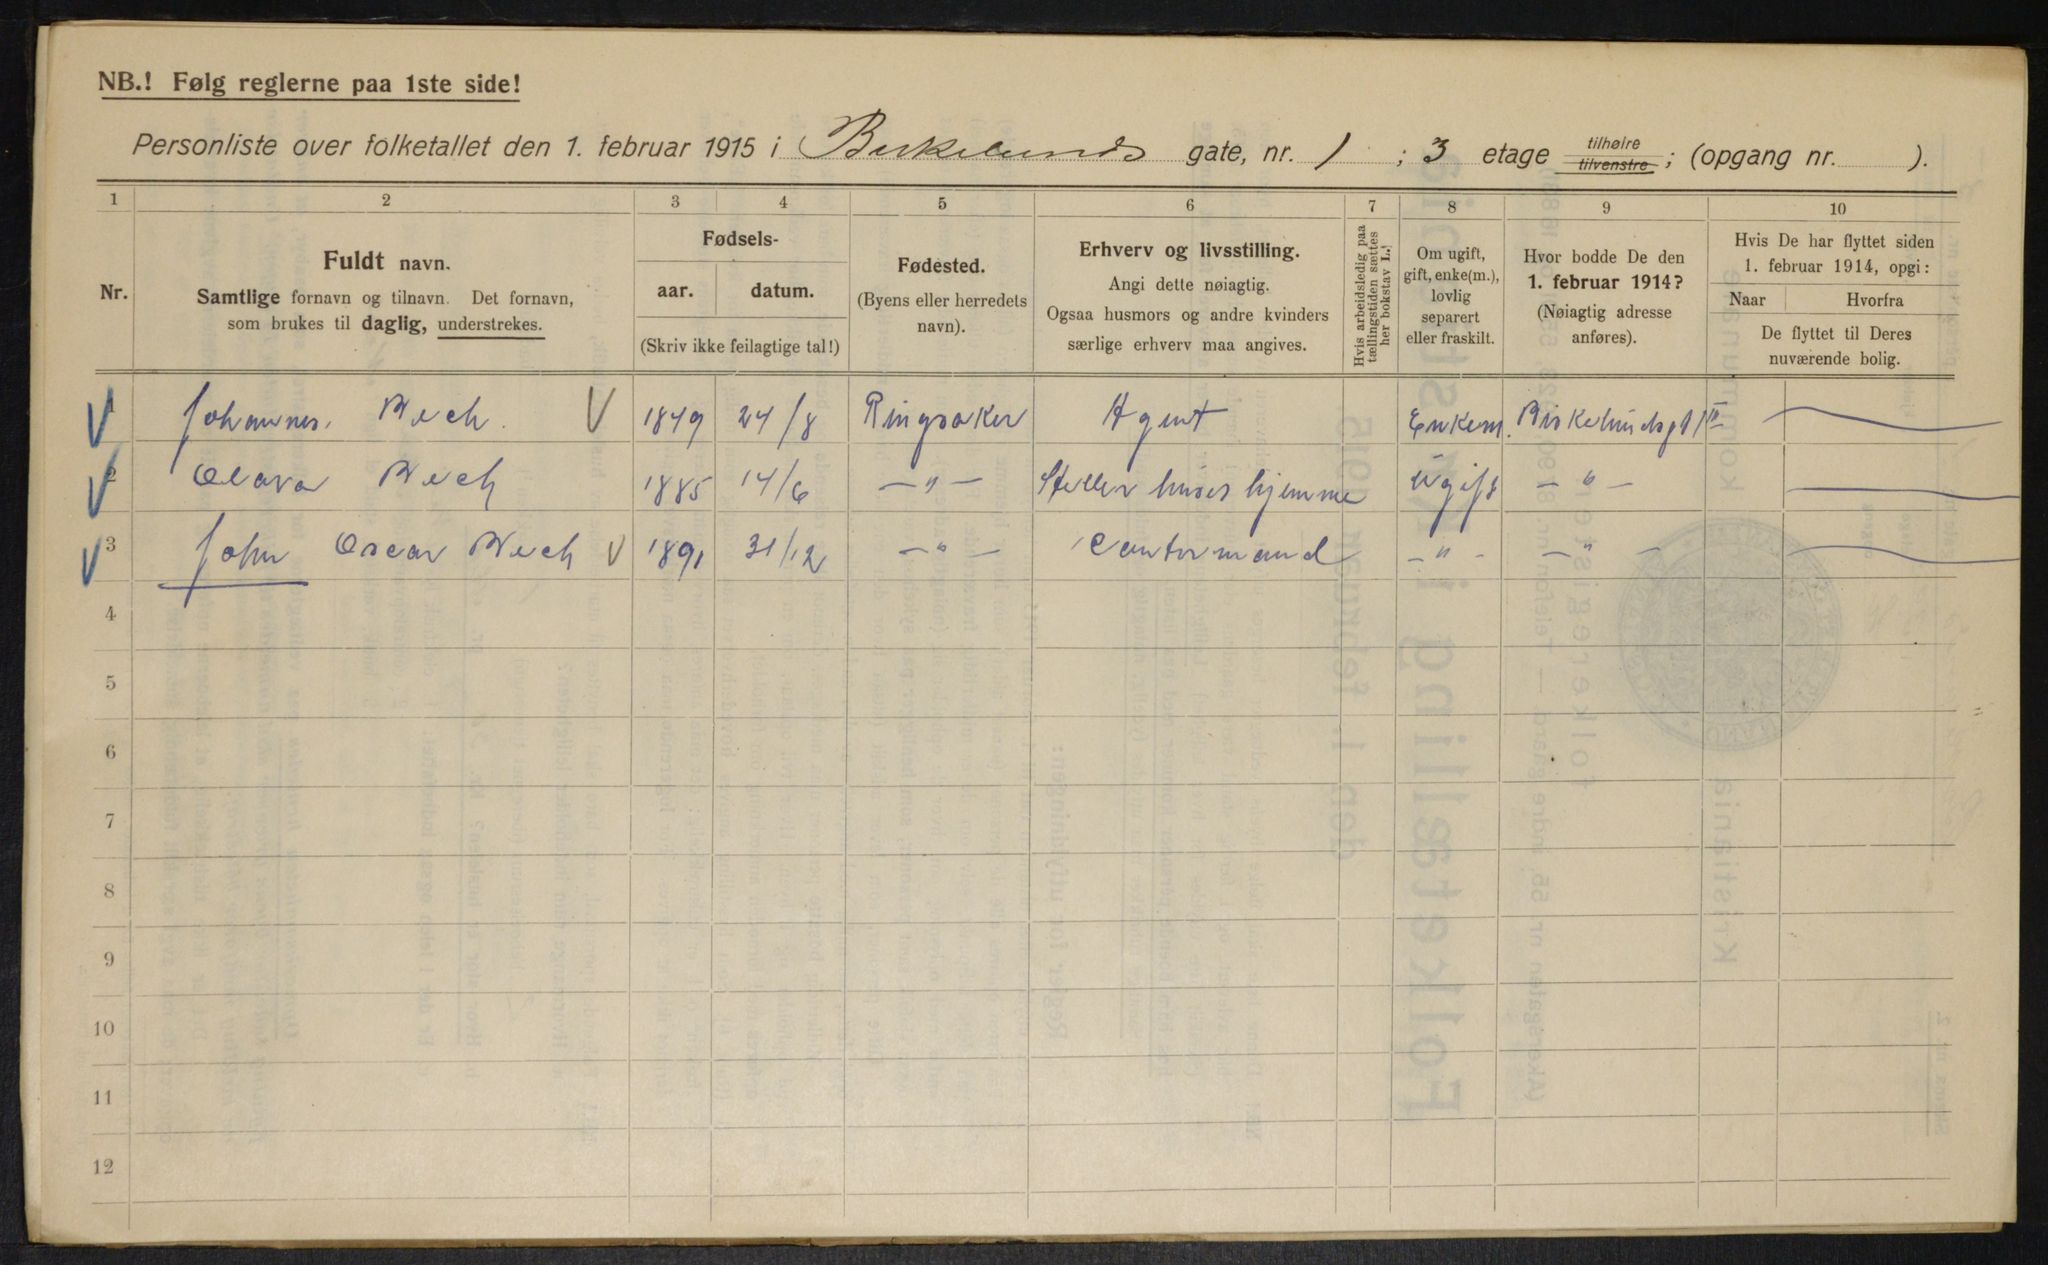 NB.! Følg reglerne paa 1ste side!
Personliste over folketallet den 1. februar 1915 i Birkelunds gate, nr. 1 ; 3 etage tilhøire tilvenstre ; (opgang nr. ).
1 2 3 4 5 6 7 8 9 10
Nr.
Fuldt navn.
Samtlige fornavn og tilnavn. Det fornavn,
som brukes til daglig, understrekes.
Fødsels-
aar. datum.
(Skriv ikke feilagtige tal!)
Fødested.
(Byens eller herredets
navn).
Erhverv og livsstilling.
Angi dette nøiagtig.
Ogsaa husmors og andre kvinders
særlige erhverv maa angives.
Hvis arbeidsledig paa
tællingstiden sættes
her bokstav L.!
Om ugift,
gift, enke(m.),
lovlig
separert
eller fraskilt.
Hvor bodde De den
1. februar 1914?
(Nøiagtig adresse
anføres).
Hvis De har flyttet siden
1. februar 1914, opgi:
Naar Hvorfra
De flyttet til Deres
nuværende bolig.
1 Johannes Bech V 1849 24/8 Ringsaker Agent Enkem. Birkelundsgt 1 III
2 Olava Bech 1885 14/6 —"— Steller huset hjemme ugift —"—
3 John Oscar Bech V 1891 31/12 —"— Contormand —"— —"—
4
5
6
7
8
9
10
11
12